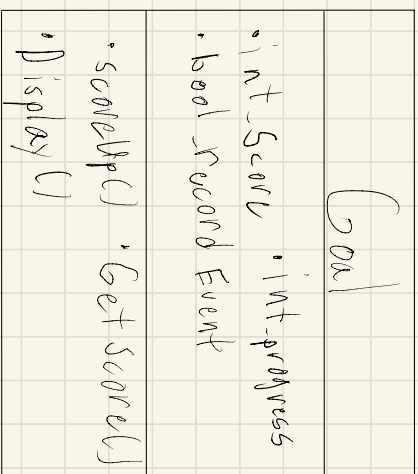 Goal
• int_Score • int_progress
• bool_record Event
• ScoreUp() • GetScore()
• Display()